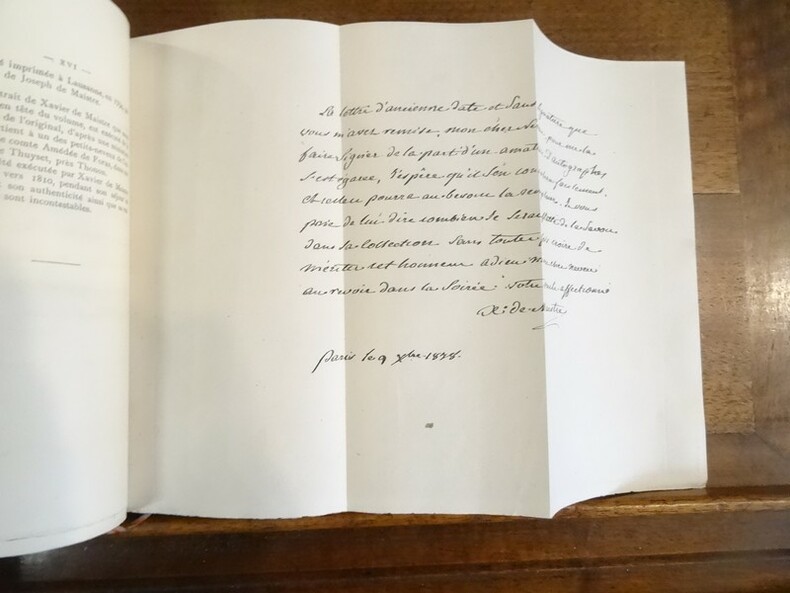 — XVI —
imprimée à Lausanne, en
de Joseph de Maistre.
trait de Xavier de Maistre que
en tête du volume, est
de l'original, d'après une
tient à un des petits-neveux
comte Amédée de Foras,
Thuyset, près Thonon.
été exécutée par Xavier de
vers 1810, pendant son séjour
son authenticité ainsi que
sont incontestables.
La lettre d'ancienne date et sans signature que
vous m'avez remise mon cher pour me la
faire signer de la part d'un amateur d'autographes
s'est egarée, j'espère qu'il s'en facilement.
Celle ci pourra au besoin la Je vous
prie de lui dire combien je serai de la Savoie
dans sa collection sans toutefois croire de
mériter cet honneur adieu mon cher neveu
au revoir dans la soirée. Votre affectionné
X: de Maistre
Paris le 9 xbre 1838.